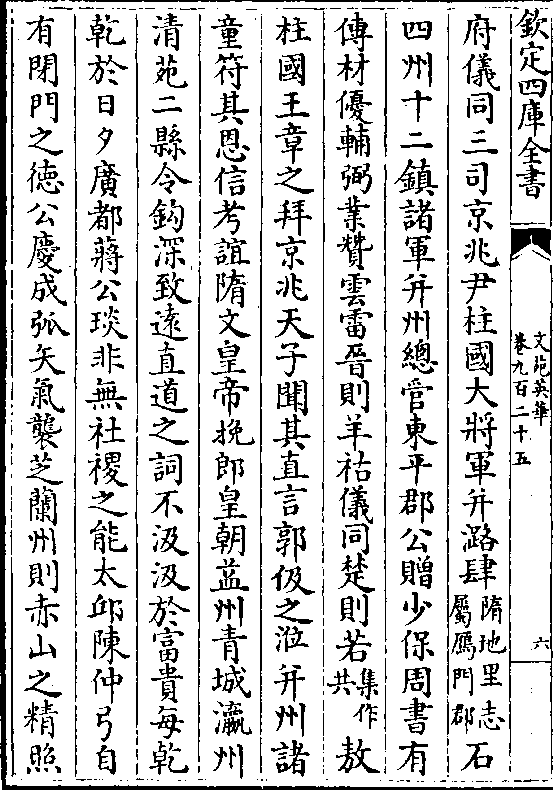 欽定四庫全書
文苑英華
卷九百二十五
六
府儀同三司京兆尹柱國大將軍并潞肆隋地里志屬鴈門郡石
四州十二鎮諸軍并州總管東平郡公贈少保周書有
傳材優輔弼業贊雲雷晉則羊祜儀同楚則若集作共敖
柱國王章之拜京兆天子聞其直言郭伋之涖并州諸
童符其恩信考誼隋文皇帝挽郎皇朝益州青城瀛州
清苑二縣令鈎深致遠直道之詞不汲汲於富貴每乾
乾於日夕廣都蔣公琰非無社稷之能太邱陳仲弓自
有閉門之徳公慶成弧矢氣襲芝蘭州則赤山之精照